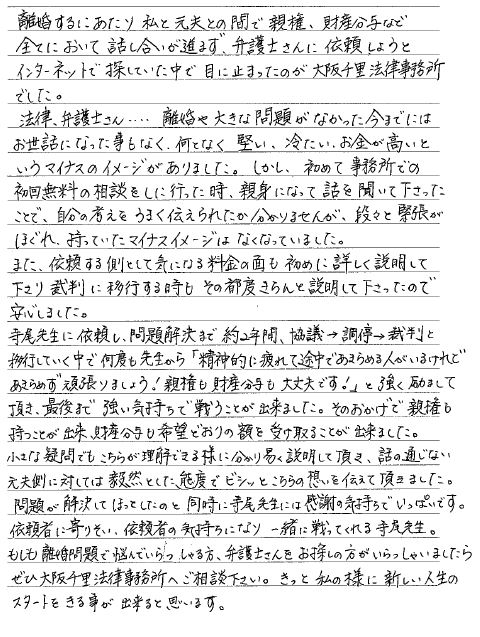 離婚するにあたり私と元夫との間で親権、財産分与など
全てにおいて話し合いが進まず、弁護士さんに依頼しようと
インターネットで探していた中で目に止まったのが大阪千里法律事務所
でした。
法律、弁護士さん‥‥ 離婚や大きな問題がなかった今までには
お世話になった事もなく、何となく 堅い、冷たい、お金が高いと
いうマイナスのイメージがありました。しかし、初めて事務所での
初回無料の相談をしに行った時、親身になって話を聞いて下さった
ことで、自分の考えをうまく伝えられたか分かりませんが、段々と緊張が
ほぐれ、持っていたマイナスイメージはなくなっていました。
また、依頼する側として気になる料金の面も初めに詳しく説明して
下さり裁判に移行する時もその都度きちんと説明して下さったので
安心しました。
寺尾先生に依頼し、問題解決まで約2年間、協議→調停→裁判と
移行していく中で何度も先生から「精神的に疲れて途中であきらめる人がいるけれど
あきらめず頑張りましょう!親権も財産分与も大丈夫です!」と強く励まして
頂き、最後まで強い気持ちで戦うことが出来ました。そのおかげで親権も
持つことが出来、財産分与も希望どおりの額を受け取ることが出来ました。
小さな疑問でもこちらが理解できる様に分かり易く説明して頂き、話の通じない
元夫側に対しては毅然とした態度でビシッとこちらの想いを伝えて頂きました。
問題が解決してほっとしたのと同時に寺尾先生には感謝の気持ちでいっぱいです。
依頼者に寄りそい、依頼者の気持ちになり一緒に戦ってくれる寺尾先生。
もしも離婚問題で悩んでいらっしゃる方、弁護士さんをお探しの方がいらっしゃいましたら
ぜひ大阪千里法律事務所へご相談下さい。きっと私の様に新しい人生の
スタートをきる事が出来ると思います。